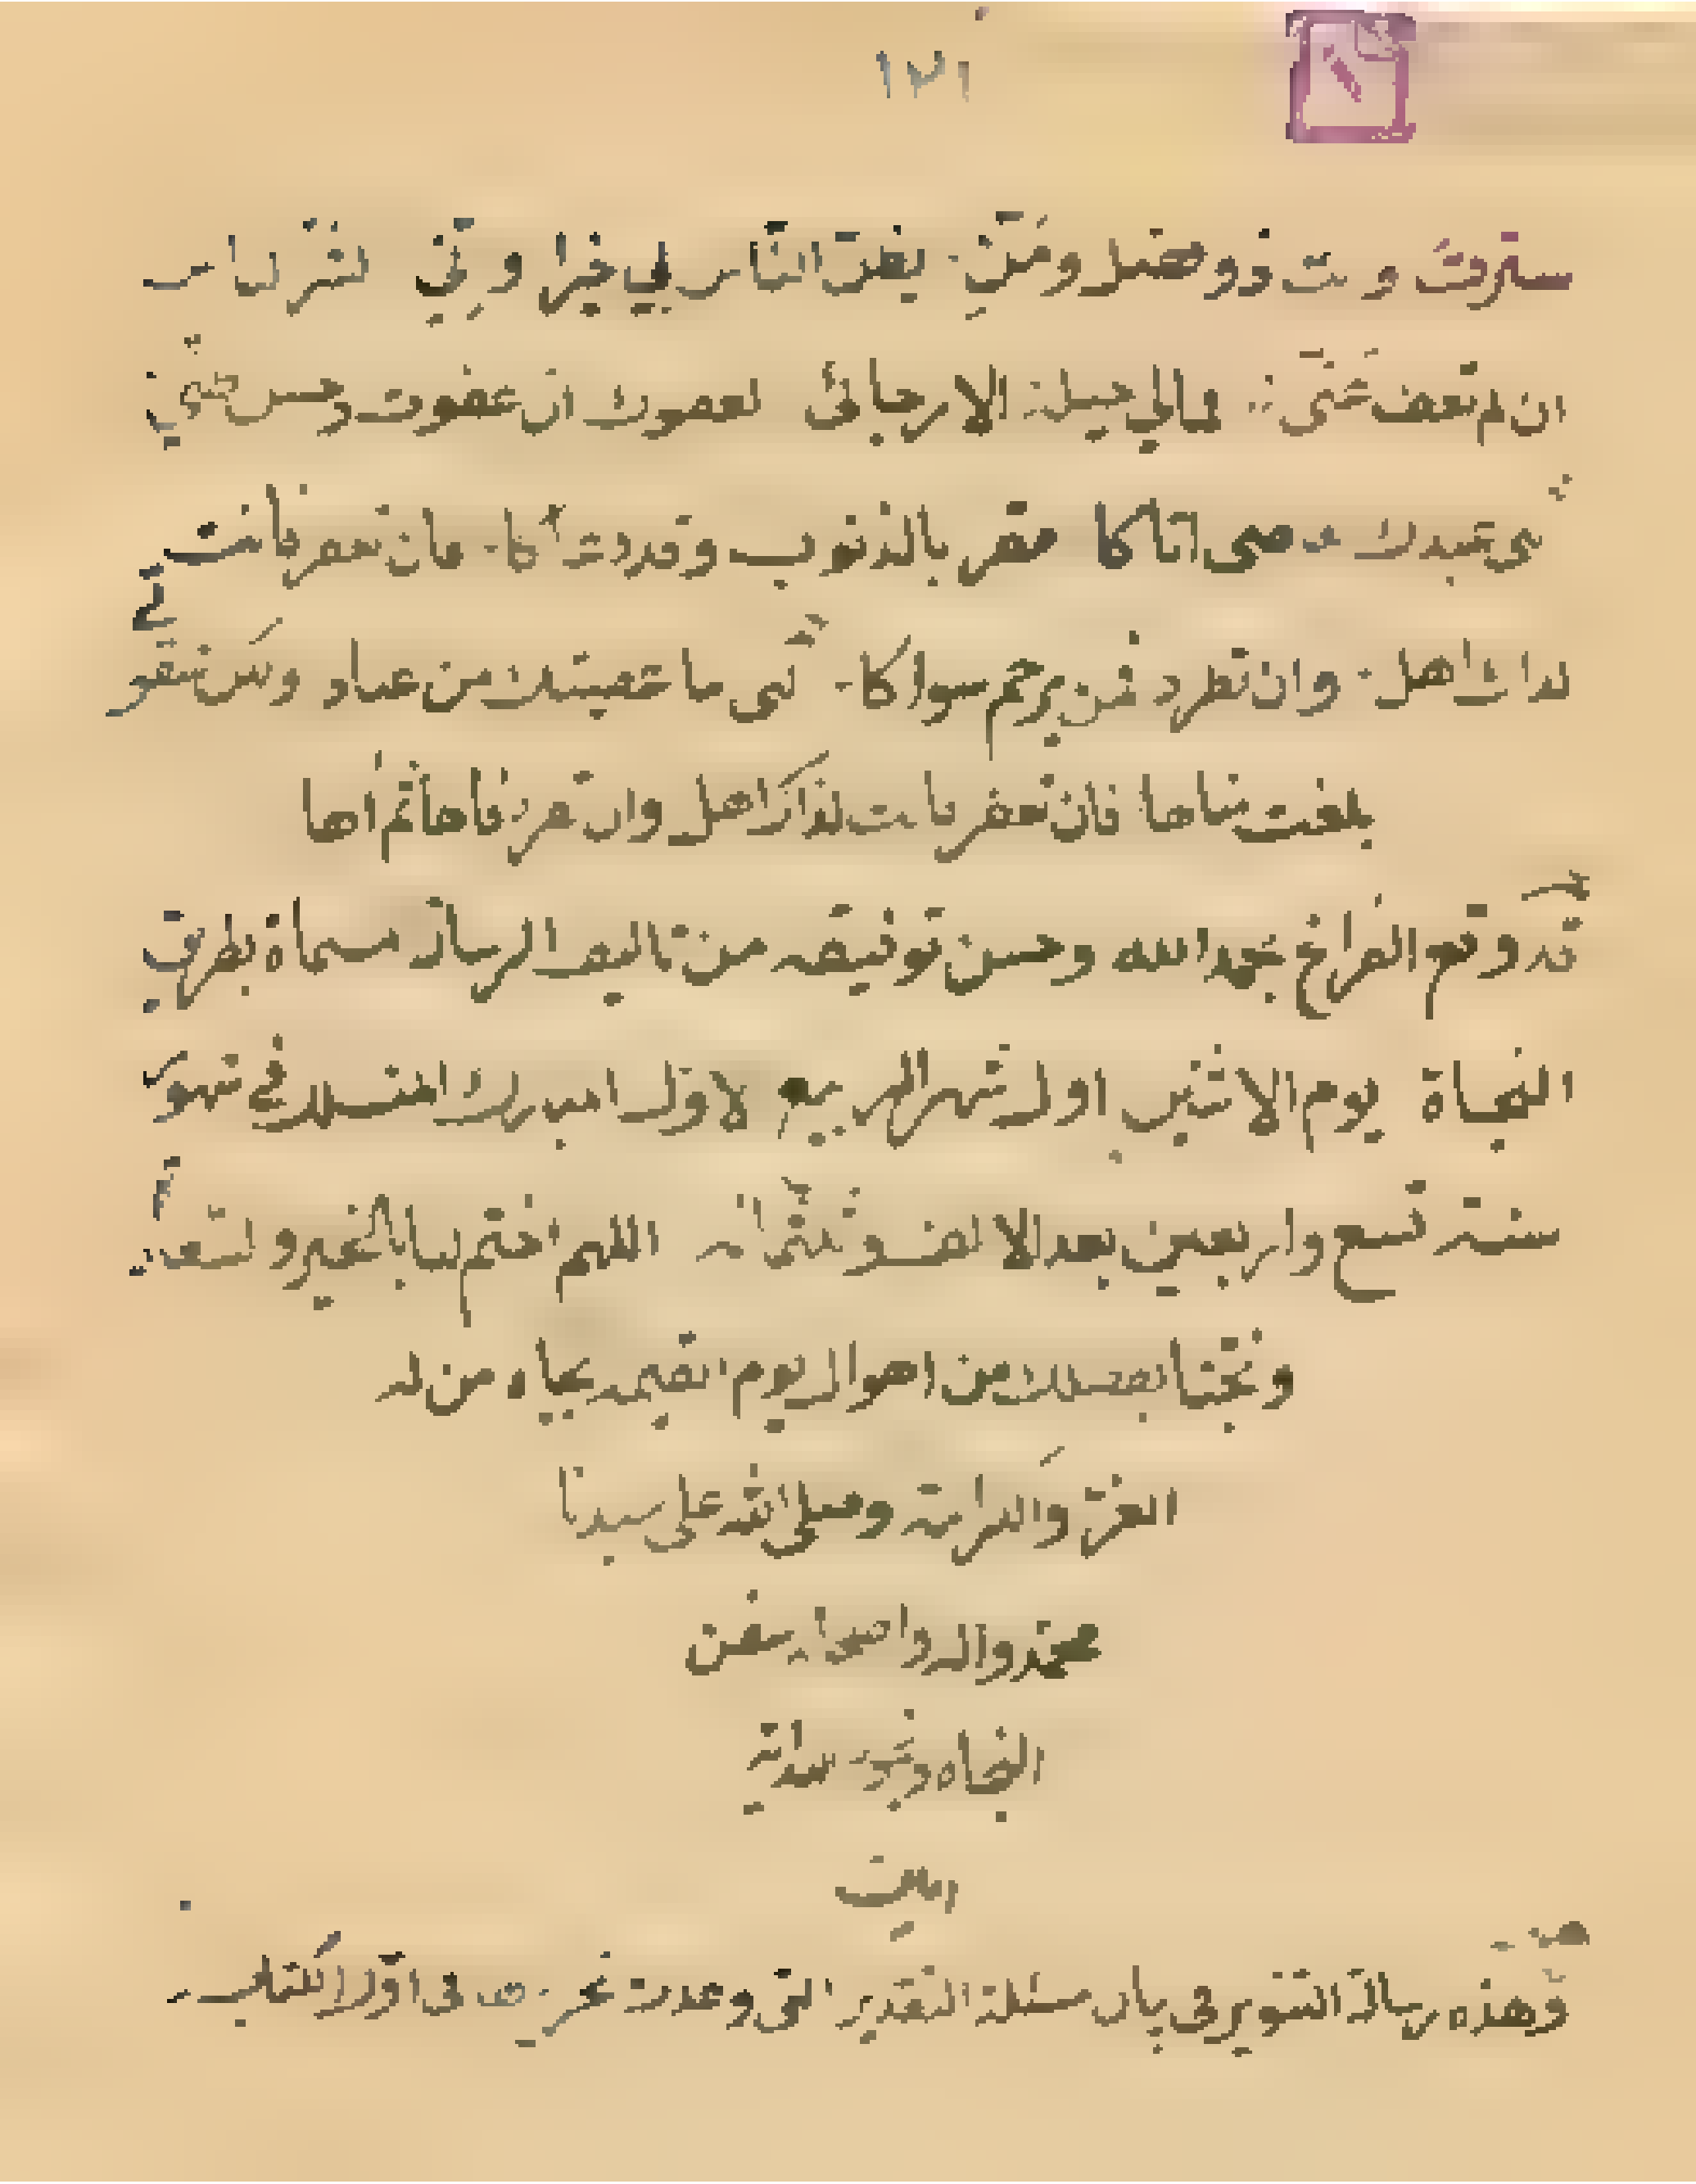 ١٢١
سترت وانت ذو فضل ومنّ يظنّ الناس بي خيرا وانّي لشرّ الناس
ان لم تعف عنّى فمالي حيلة الا رجائى لعفوك ان عفوت وحسن ظنّي
عبدك عاصى اتاكا مقر بالذنوب وقد دعاكا فان تغفر فانت
لذاك اهل وان تطرد فمن يرحم سواكا الهى ما عصيتك من عناد
بلغت مناها فان تغفر فانت لذاك اهل وان
قد وقع الفراغ بحمد الله وحسن توفيقه من تاليف الرسالة مسماة بطريق
النجاة يوم الاثنين اول شهر الربيع الاول المبارك المنسلك في شهور
سنة تسع واربعين بعد الالف وثلثمائة اللهم اختم لنا بالخير والسعادة
ونجّنا بفضلك من اهوال يوم القيمة بجاه من له
العزّ والكرامة وصلى الله على سيدنا
محمّد واله واصحابه سفن
النجاه ونجوم الهداية
امين
وهذه رسالة التنوير فى بيان مسئلة التقدير التى وعدت تحريره فى اوّل الكتاب